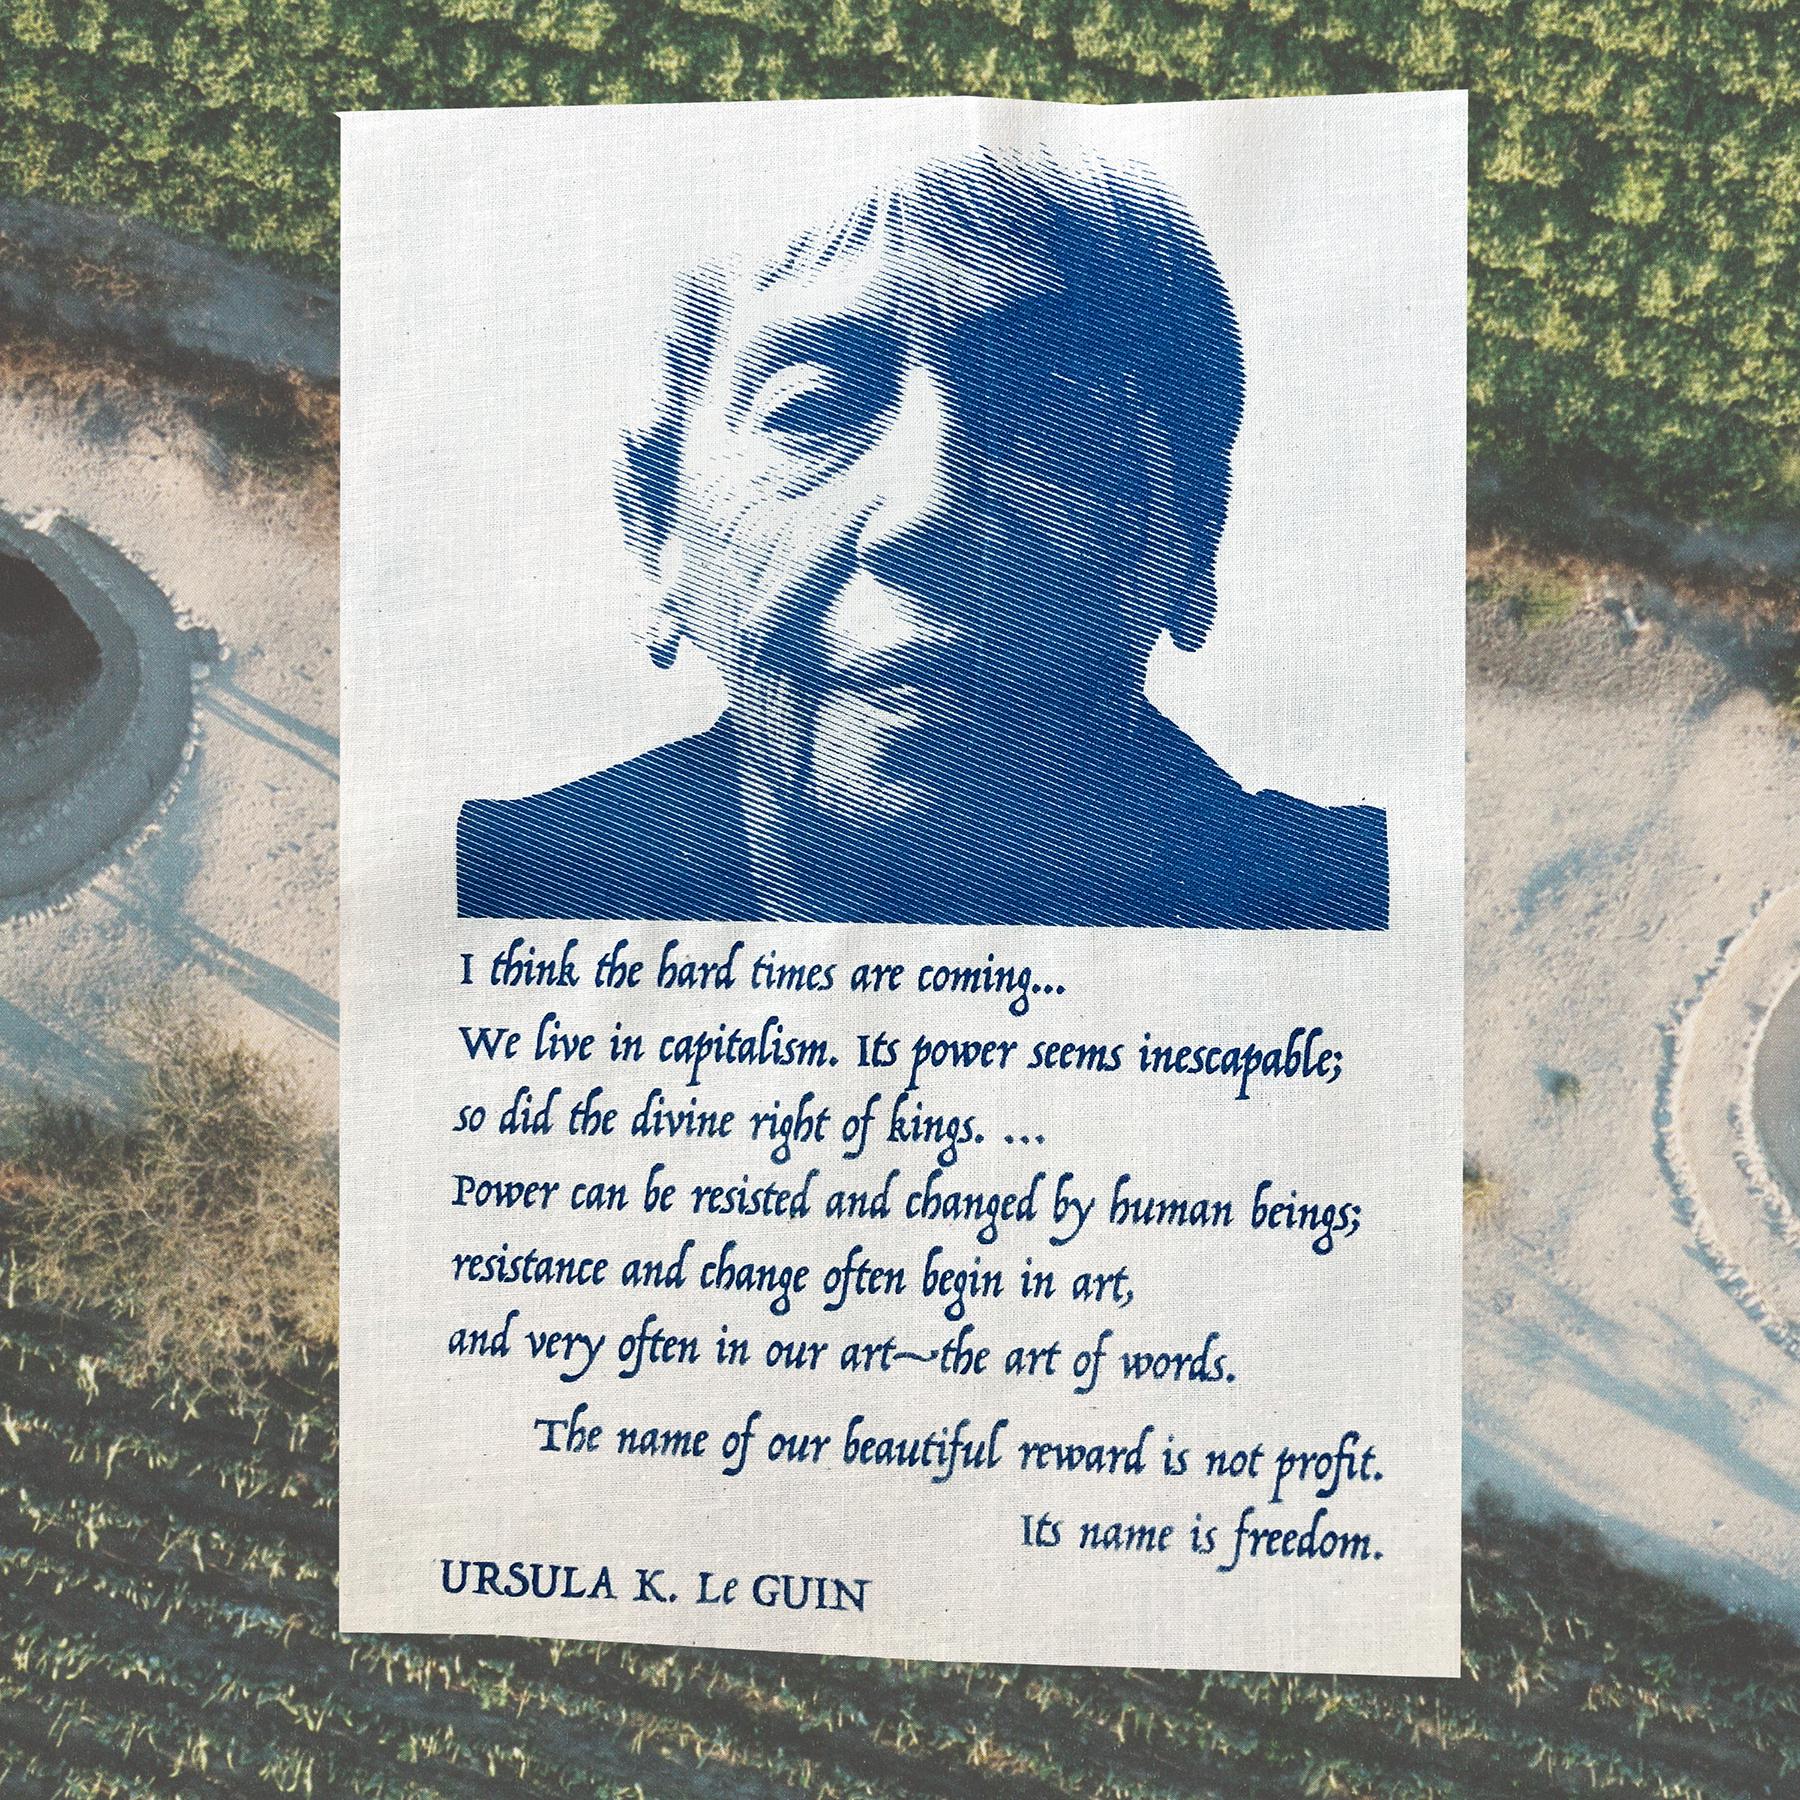 I think the hard times are coming...
We live in capitalism. Its power seems inescapable;
so did the divine right of kings. ...
Power can be resisted and changed by human beings;
resistance and change often begin in art,
and very often in our art—the art of words.
The name of our beautiful reward is not profit.
Its name is freedom.
URSULA K. Le GUIN